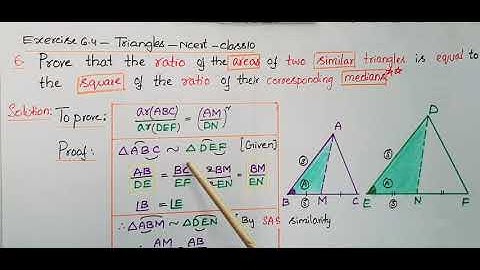 Exercise 6.4 - Triangles - Ncert - class10
6. Prove that the ratio of the areas of two similar triangles is equal to
the square of the ratio of their corresponding medians.**
Solution: To prove: ar(ABC)/ar(DEF) = (AM/DN)²
Proof: △ABC ~ △DEF [Given]
AB/DE = BC/EF = 2BM/2EN = BM/EN
∠B = ∠E
∴ △ABM ~ △DEN [By SAS similarity
AM AB
A
S
A
S S
B M C
D
S
A
S S
E N F